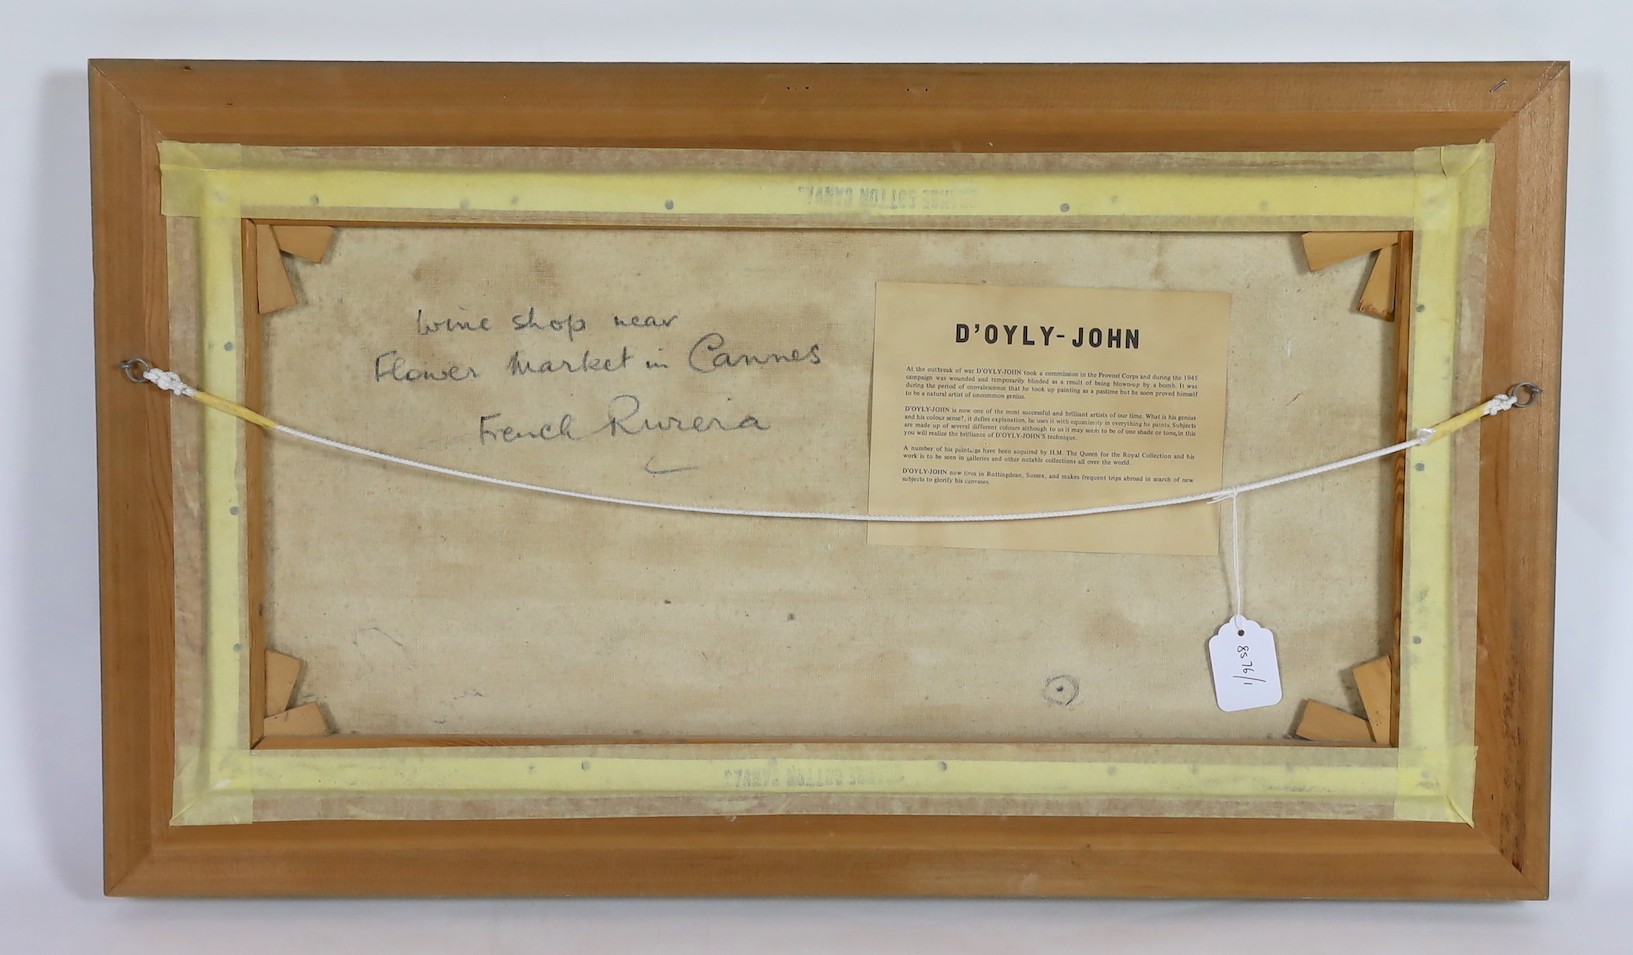 wine shop near
Flower Market in Cannes
French Riviera
D'OYLY-JOHN
At the outbreak of war D'OYLY-JOHN took a commission in the Provost Corps and during the 1945
campaign was wounded and temporarily blinded as a result of being blown-up by a bomb. It was
during the period of convalescence that he took up painting as a pastime but he soon proved himself
to be a natural artist of uncommon genius.
D'OYLY-JOHN is now one of the most successful and brilliant artists of our time. What is his genius
and his colour sense?, it defies explanation, he uses it with equanimity in everything he paints. Subjects
are made up of several different colours although to us it may seem to be of one shade or tone, in this
you will realize the brilliance of D'OYLY-JOHN'S technique.
A number of his paintings have been acquired by H.M. The Queen for the Royal Collection and his
work is to be seen in galleries and other notable collections all over the world.
D'OYLY-JOHN now lives in Rottingdean, Sussex, and makes frequent trips abroad in search of new
subjects to glorify his canvases.
8576/1
COTTON CANVAS
COTTON CANVAS